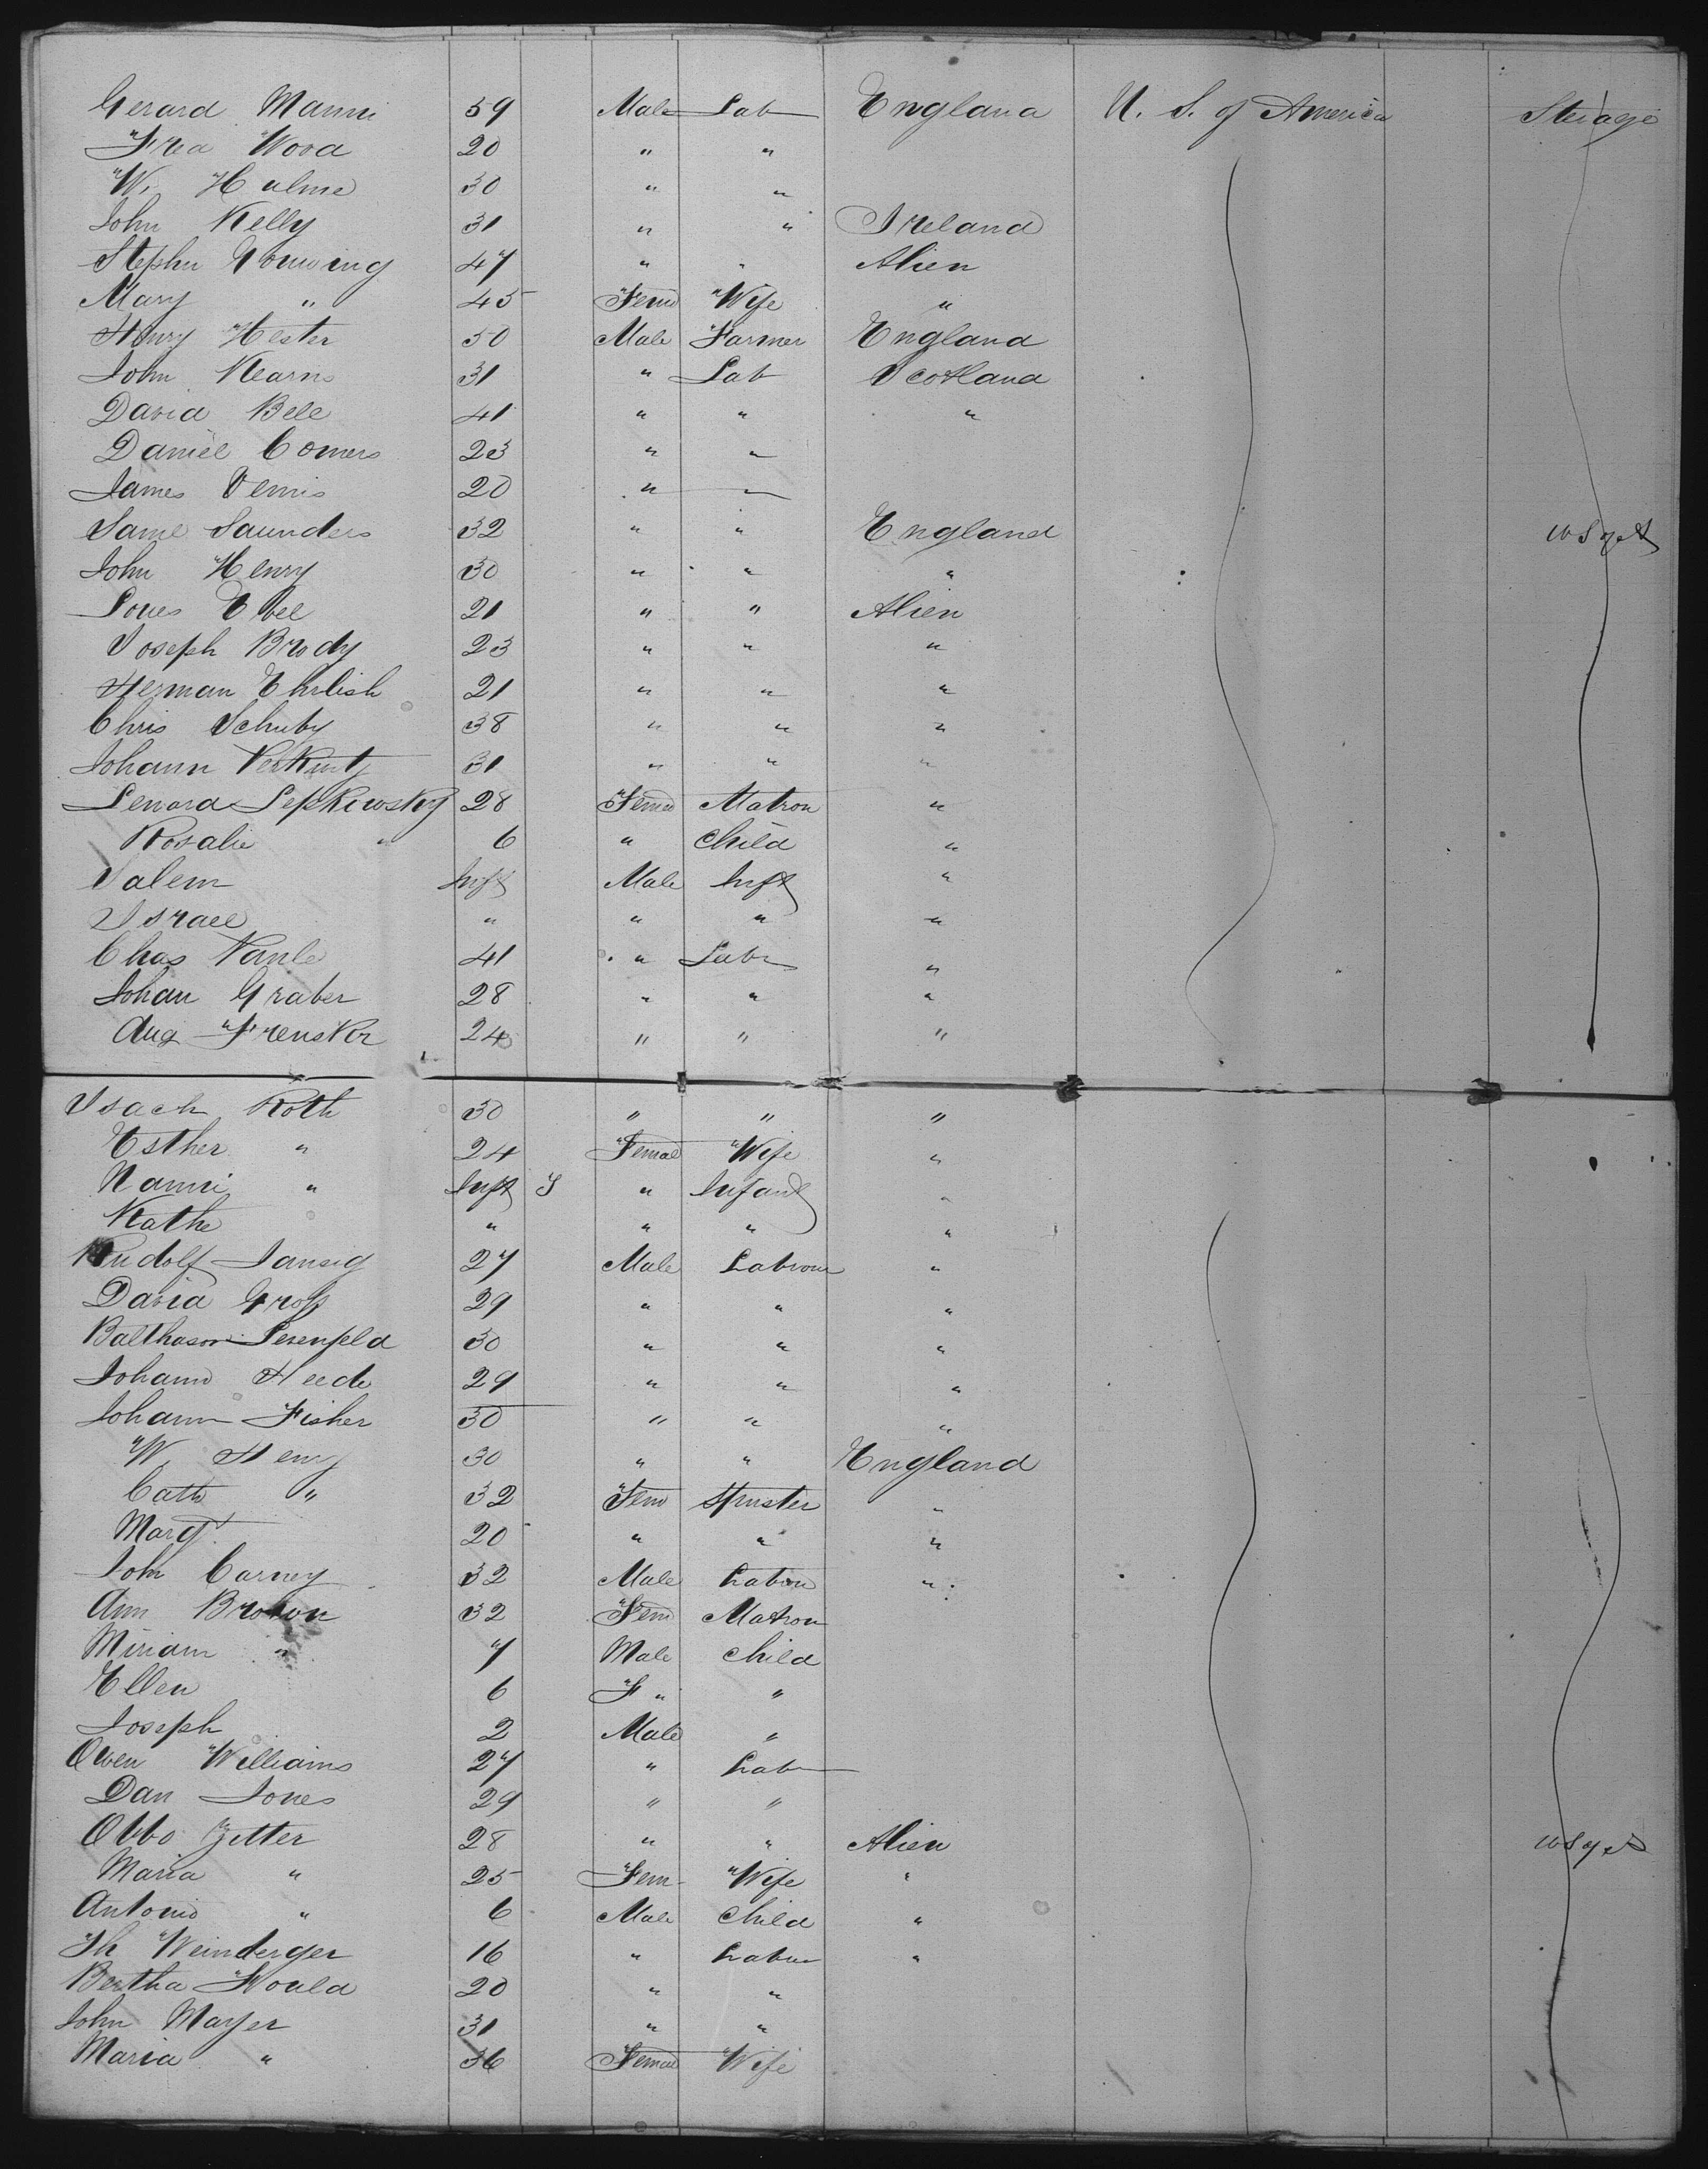 Gerard Manni 59 Male Lab England U. S. of America Sterage
Fred Wood 20 " "
W. Hulme 30 " "
John Kelly 31 " " Ireland
Stephn 47 " " Alien
Mary " 45 Feme Wife "
Henry Hester 50 Male Farmer England
John Kearns 31 " Lab Scotland
David Bell 41 " " "
Daniel Comers 23 " "
James 20 " "
Saml Saunders 32 " " England
John Henry 30 " " "
Loues Ebel 21 " " Alien
Joseph Brody 23 " " "
Herman Ehrlish 21 " " "
Chris Schuby 38 " " "
Johann 31 " " "
Lenora Lepkowsky 28 Feme Matron "
Rosalie " 6 " Child "
Salem Inft Male Inft "
Israel " " " "
Chas 41 " Labr "
Johan Graber 28 " " "
Aug Frensker 24 " " "
Isach Roth 30 " " "
Esther " 24 Femal Wife "
Nanni " Inft S " Infant "
Kathe " " " "
Rudolf Jansig 27 Male Labrour "
David Gross 29 " " "
Balthasor Lesenfeld 30 " " "
Johann Heede 29 " " "
Johann Fisher 30 " " "
W Henry 30 " " England
Cath " 32 Fem Spinster "
Margt 20 " " "
John Carney 32 Male Labour "
Ann Brown 32 Fem Matron
Miriam " 7 Male Child
Ellen 6 F " "
Joseph 2 Male "
Owen Williams 27 " Labr
Dan Jones 29 " "
Otto Zetter 28 " " Alien
Maria " 25 Fem Wife "
Antonio " 6 Male Child "
Th Weinberger 16 " Labour "
Bertha 20 " "
John Mayer 31 " "
Maria " 36 Femal Wife